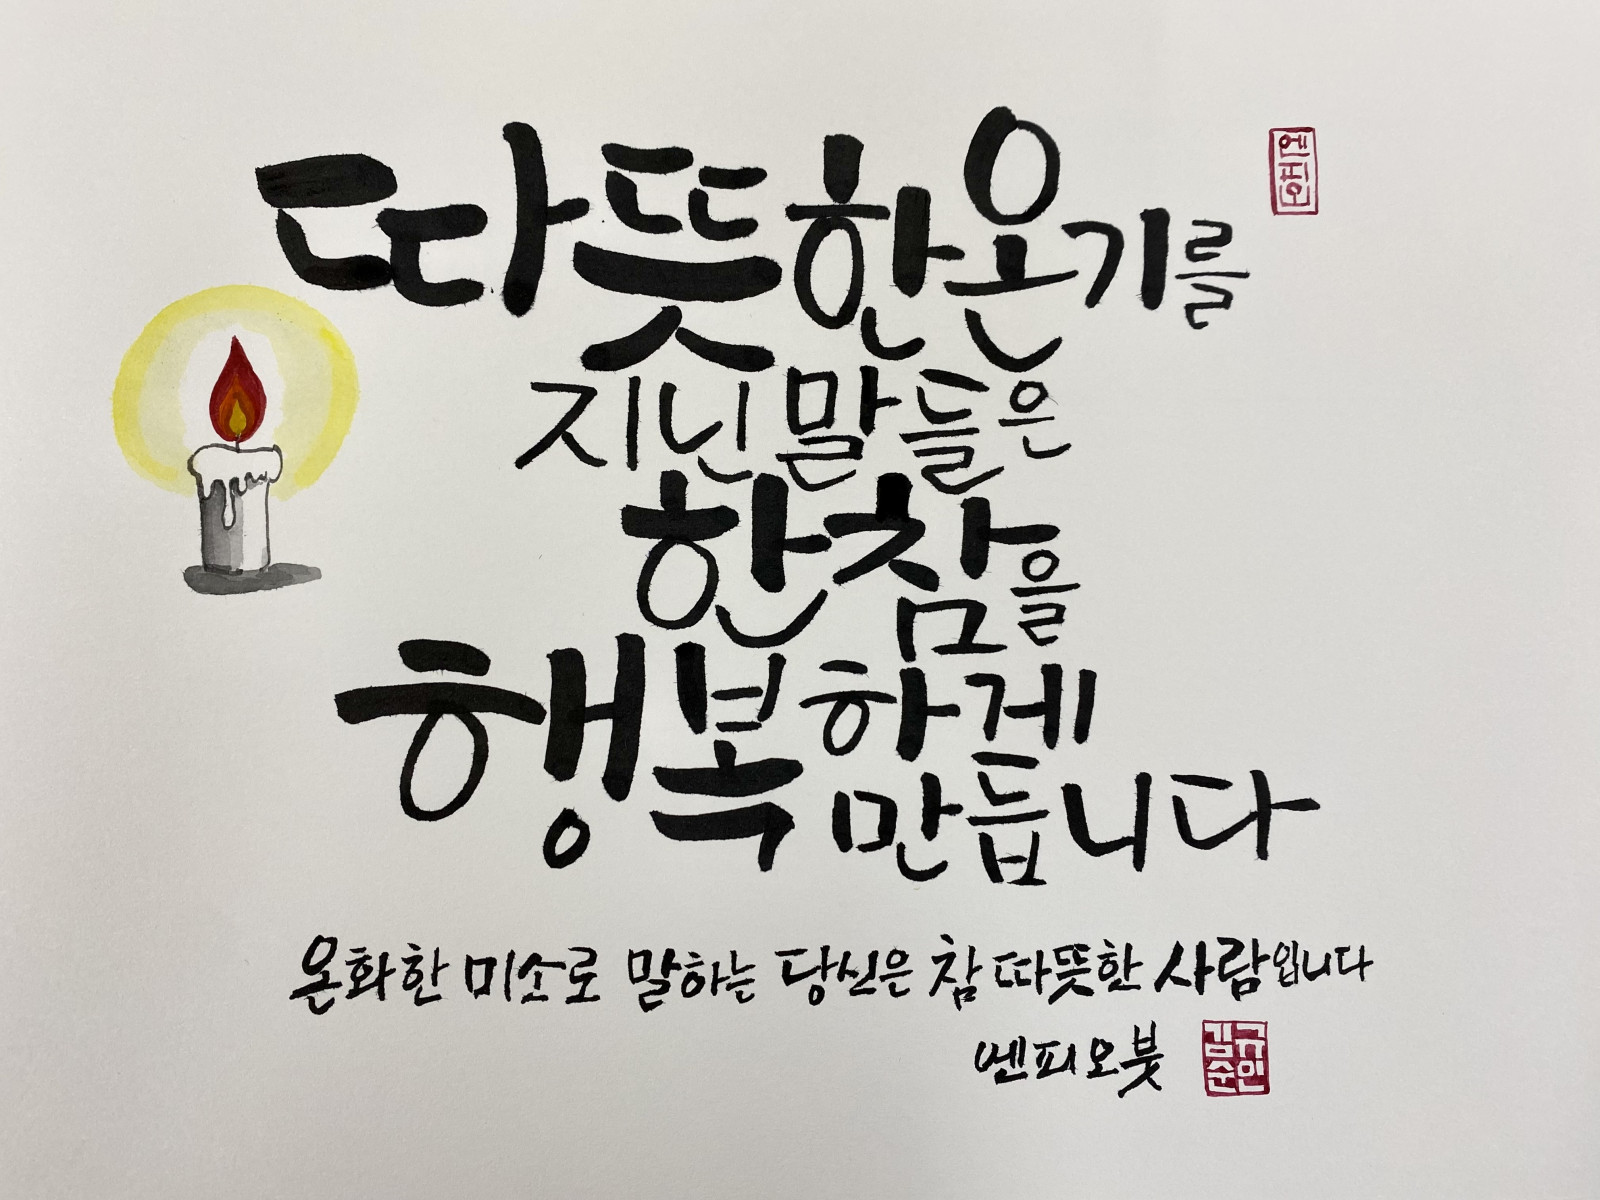 따뜻한 온기를
지닌 말들은
한참을
행복하게
만듭니다
온화한 미소로 말하는 당신은 참 따뜻한 사람입니다
엔피오붓